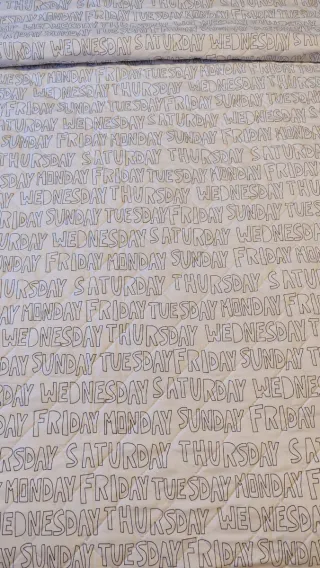 SATURDAY WEDNESDAY SATURDAY WEDNESDAY
MONDAY FRIDAY TUESDAY MONDAY
SUNDAY TUESDAY FRIDAY SUNDAY TUES
SATURDAY WEDNESDAY SATURDAY WEDNE
SUNDAY FRIDAY MONDAY SUNDAY FRIDAY
THURSDAY SATURDAY THURSDAY SATUR
SDAY MONDAY FRIDAY TUESDAY MONDAY FRIDA
AY WEDNESDAY THURSDAY WEDNESDAY THURS
RIDAY SUNDAY TUESDAY FRIDAY SUNDAY TUES
URDAY WEDNESDAY SATURDAY WEDNESDAY
SUNDAY FRIDAY MONDAY SUNDAY FRIDAY MO
URSDAY SATURDAY THURSDAY SATU
AY MONDAY FRIDAY TUESDAY MONDAY FRI
WEDNESDAY THURSDAY WEDNESDAY TH
DAY SUNDAY TUESDAY FRIDAY SUNDAY TU
DAY WEDNESDAY SATURDAY WEDNES
DAY FRIDAY MONDAY SUNDAY FRIDAY
RSDAY SATURDAY THURSDAY SA
MONDAY FRIDAY TUESDAY MONDAY F
EDNESDAY THURSDAY WEDNESDAY
AY SUNDAY TUESDAY FRIDAY SUNDAY